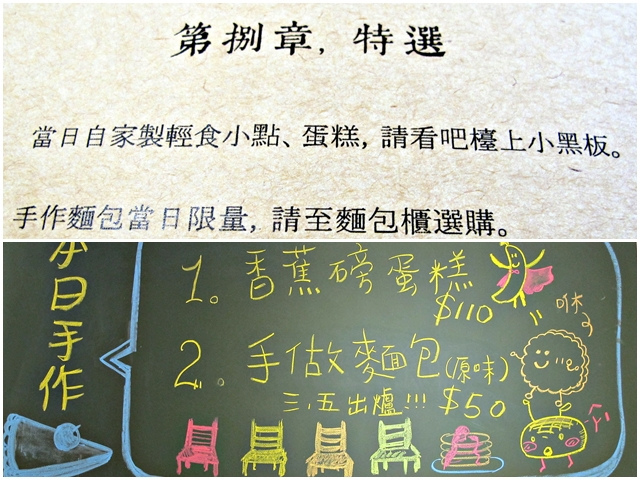 第捌章，特選
當日自家製輕食小點、蛋糕，請看吧檯上小黑板。
手作麵包當日限量，請至麵包櫃選購。
本日手作
1。香蕉磅蛋糕
$110
咻
2。手做麵包(原味)
三．五出爐!!! $50